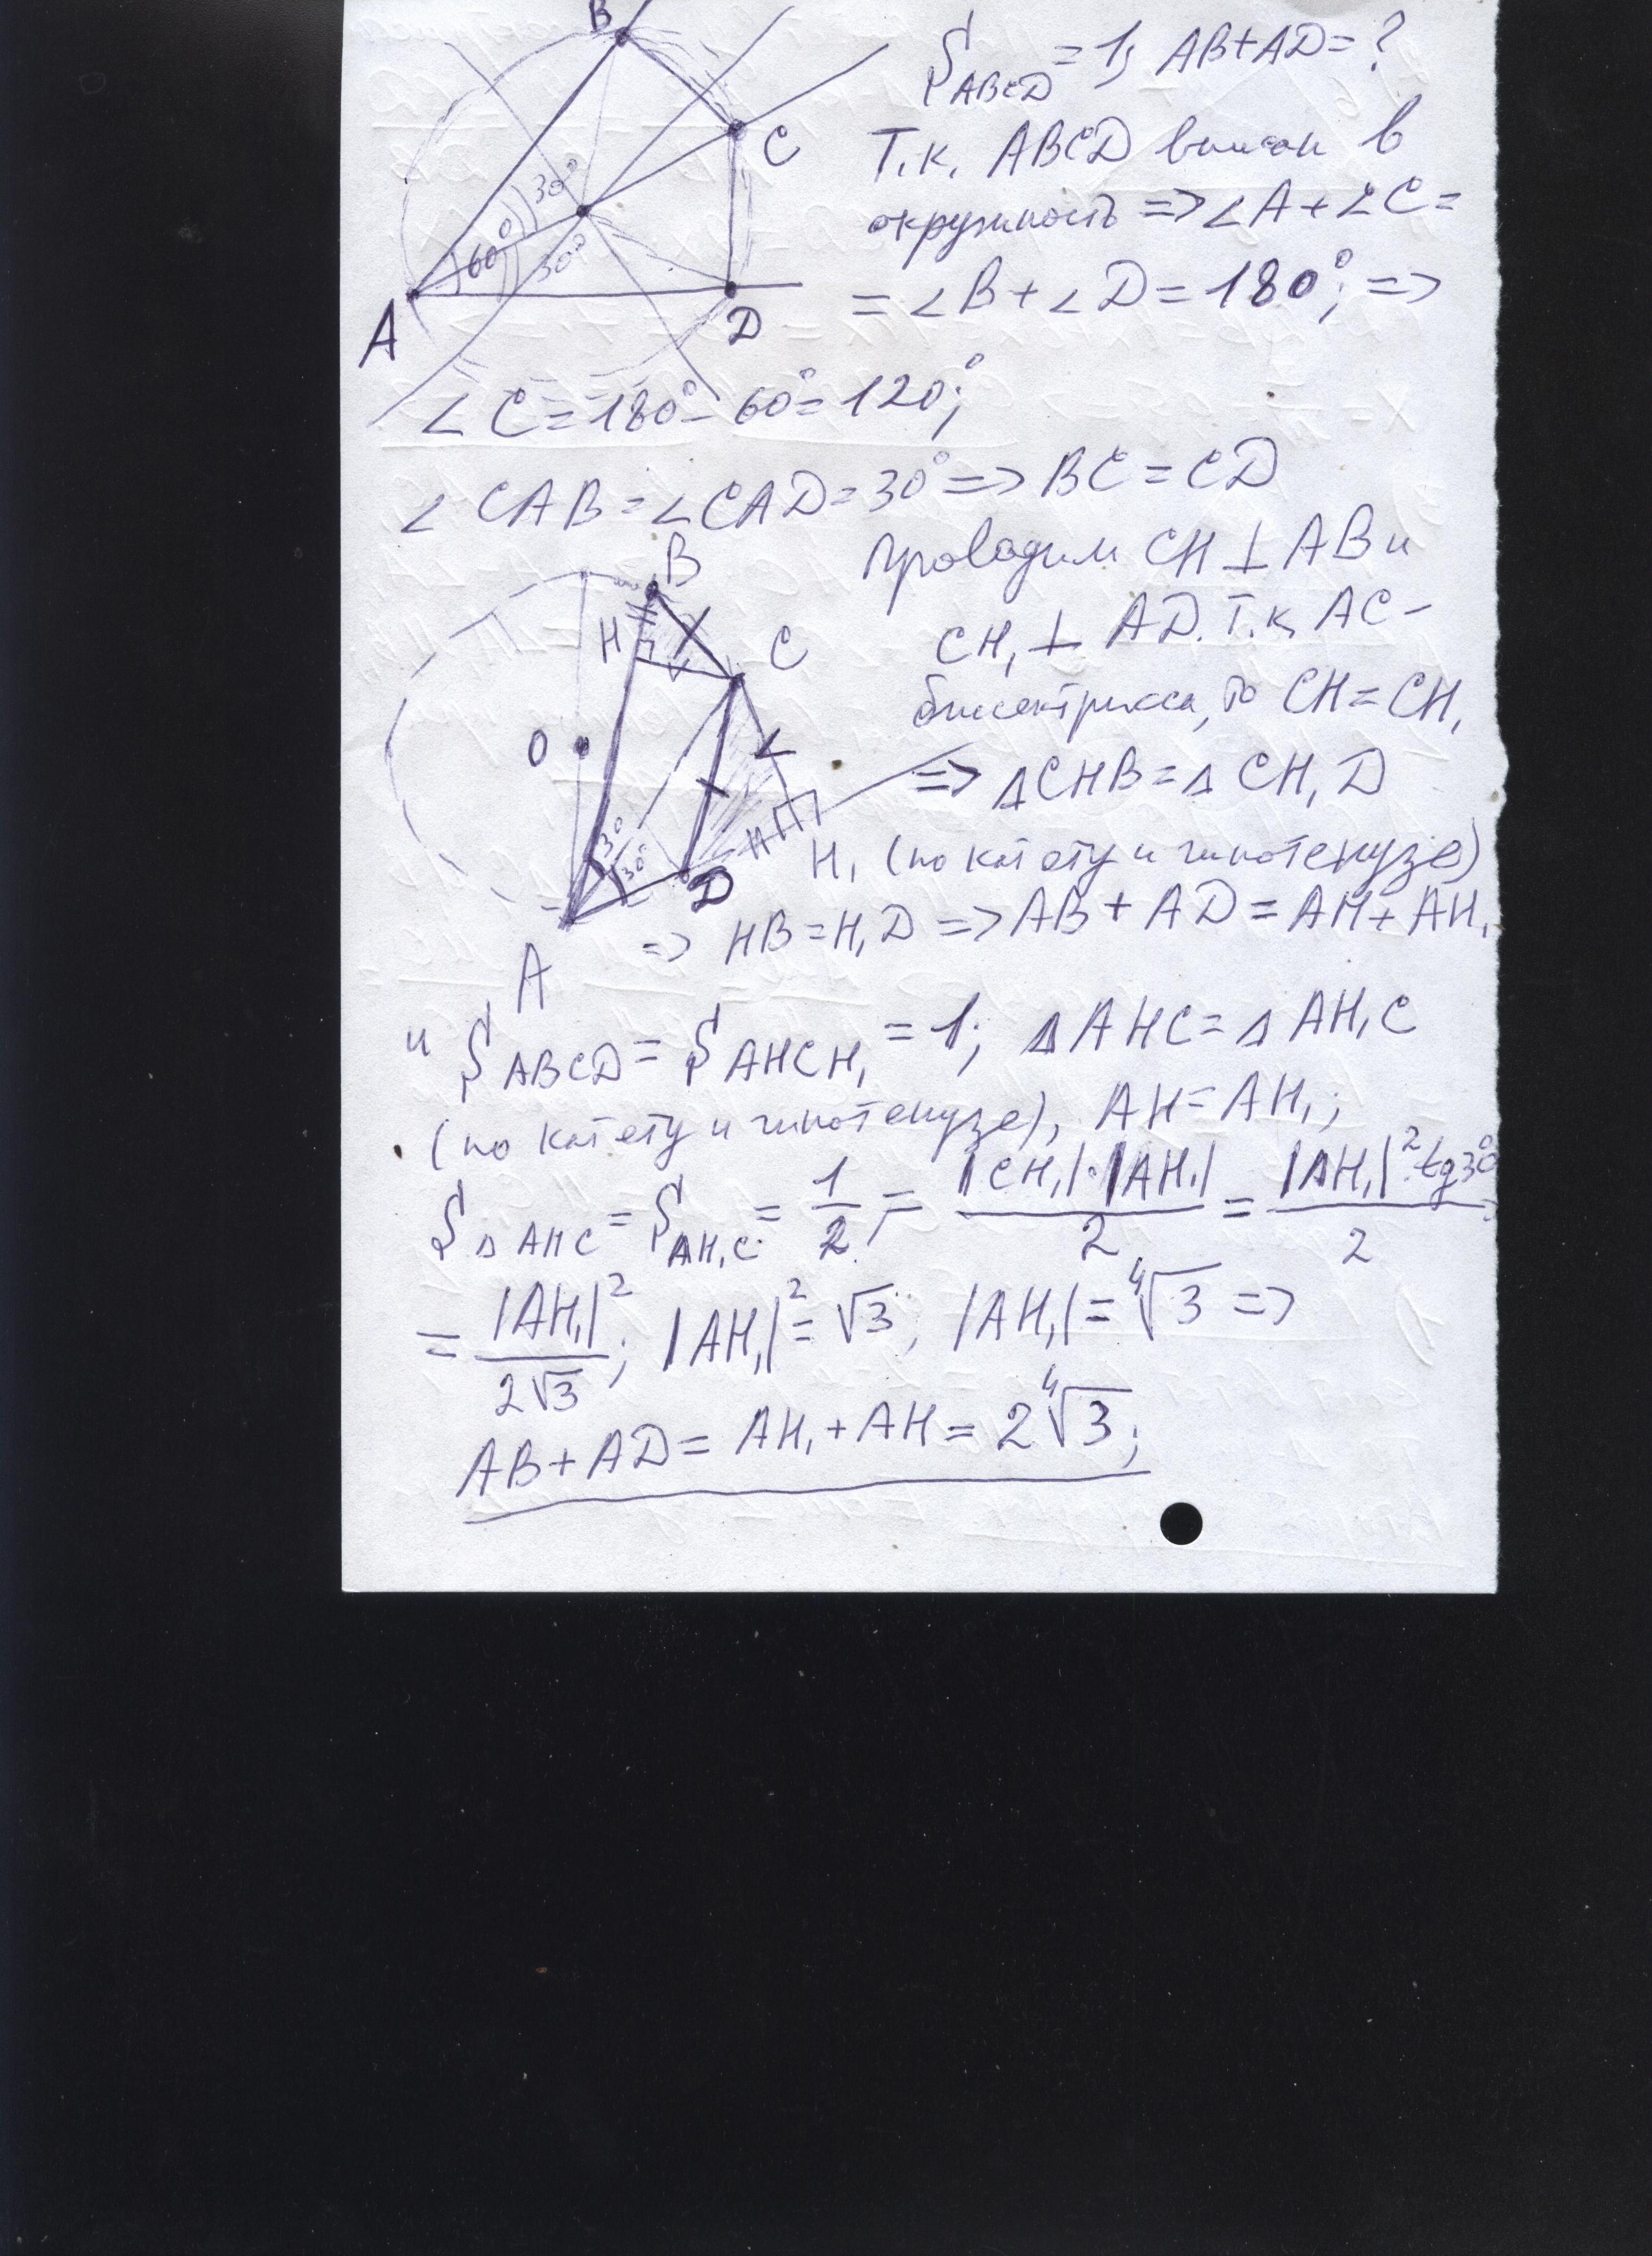 B
S ABCD = 1; AB+AD=?
C
30°
60°
30°
A
D
Т.к. ABCD вписан в
окружность => ∠A+∠C=
= ∠B+∠D=180°; =>
∠C=180°-60°=120°;
∠CAB=∠CAD=30° => BC=CD
Проводим CH⊥AB и
CH₁⊥AD. Т.к. AC-
биссектриса, то CH=CH₁
=> ΔCHB=ΔCH₁D
B
H
C
O
30°
30°
D
H₁
A
(по катету и гипотенузе)
=> HB=H₁D => AB+AD=AH+AH₁
и S ABCD = S AHCH₁ = 1; ΔAHC=ΔAH₁C
(по катету и гипотенузе), AH=AH₁;
S ΔAHC = S AH₁C = 1/2; = |CH₁|·|AH₁|/2 = |AH₁|²·tg30°/2 =
= |AH₁|²/2√3; |AH₁|²=√3; |AH₁|=⁴√3 =>
AB+AD=AH₁+AH=2⁴√3;